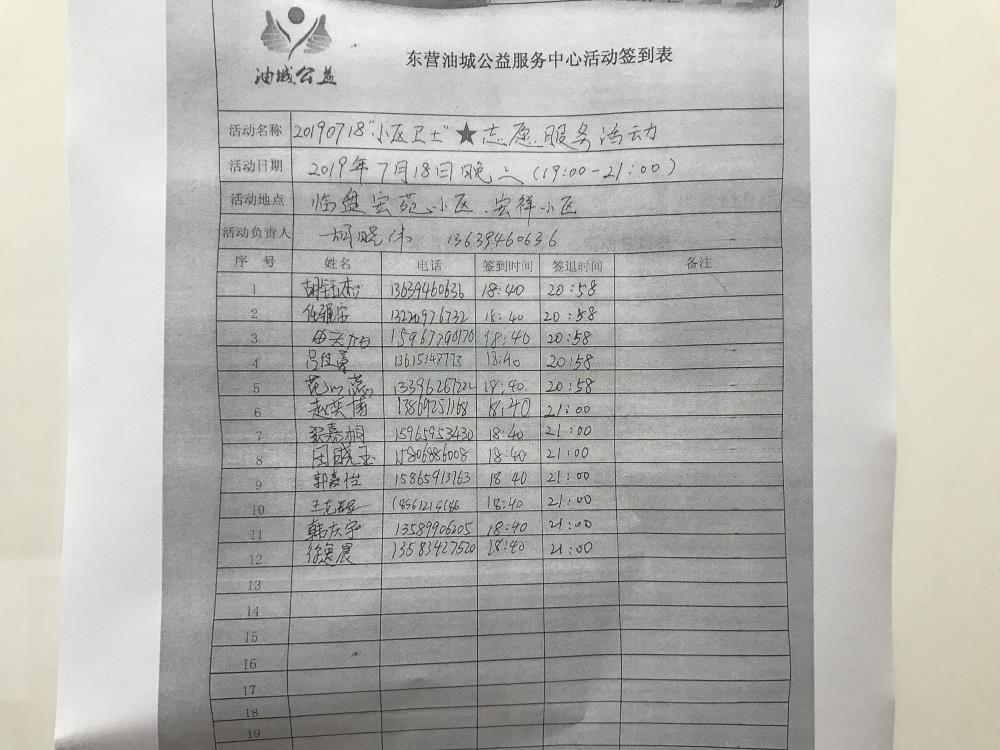 油城公益
东营油城公益服务中心活动签到表
活动名称 20190718"小区卫士"★志愿服务活动
活动日期 2019年7月18日晚上(19:00-21:00)
活动地点 临盘宏苑小区、宏祥小区
活动负责人 胡晓伟 13639460636
序号 姓名 电话 签到时间 签退时间 备注
1 胡钰杰 13639460636 18:40 20:58
2 13220976732 18:40 20:58
3 15967390170 18:40 20:58
4 13615348773 18:40 20:58
5 13396267222 18:40 20:58
6 赵奕博 13869251168 18:40 21:00
7 嘉桐 15965953430 18:40 21:00
8 田晓玉 15806886008 18:40 21:00
9 郭嘉怡 15865913163 18:40 21:00
10 18:40 21:00
11 韩庆宇 13589906205 18:40 21:00
12 徐逸晨 13583427520 18:40 21:00
13
14
15
16
17
18
19